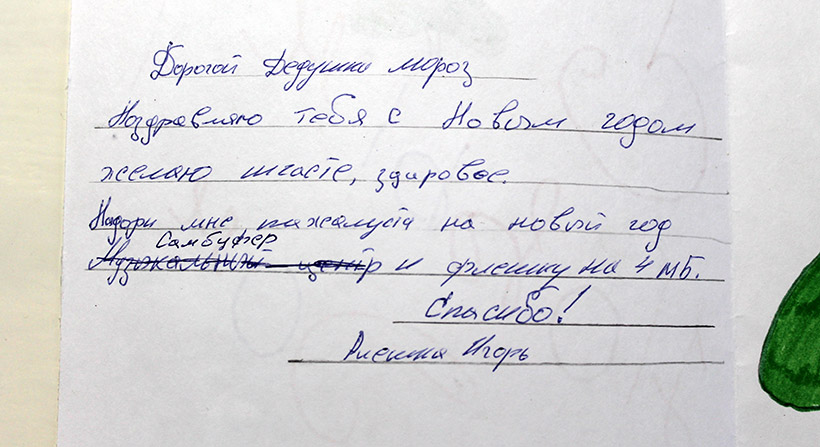 Дорогой Дедушка мороз
Поздравляю тебя с Новым годом
желаю щтасте, здаровое.
Падори мне пажалуста на новый год
Самбуфер
Музыкальный центр и флешку на 4 мБ.
Спасибо!
Игорь